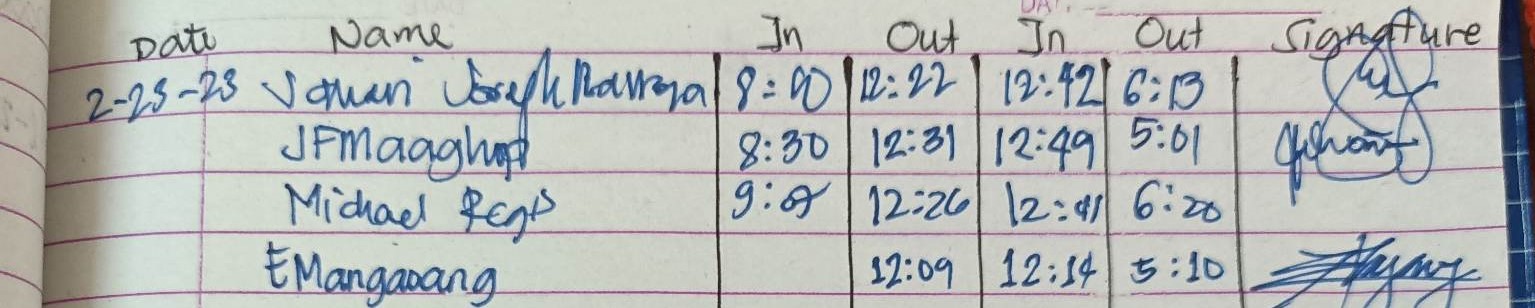 Date Name In Out In Out Signature
2-23-23 Joseph 8:00 12:22 12:42 6:13
JFMaaghop 8:30 12:31 12:49 5:01
Michael 12:26 12:41 6:20
EMangaoang 12:09 12:14 5:10